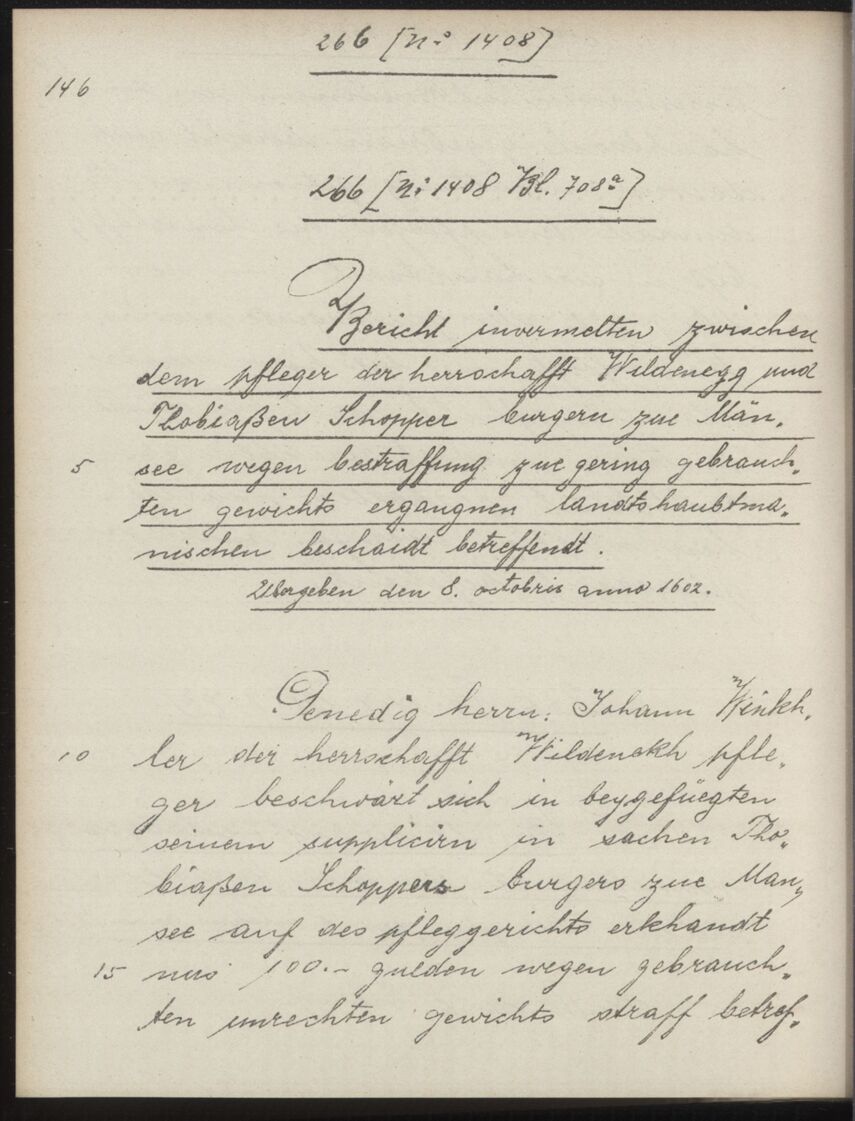 266 [N: 1408]
146
266 [N: 1408 Bl. 708a]
Bericht invermelten zwischen
dem pfleger der herrschafft Wildenegg und
Thobiaßen Schopper burgern zue Män„
5 see wegen bestraffung zue gering gebrauch„
ten gewichts ergangnen landtshaubtma„
nischen beschaidt betreffendt.
Übergeben den 8. octobris anno 1602.
Genedig herrn: Johann Winkh„
10 ler der herrschafft Wildenekh pfle„
ger beschwärt sich in beygefüegten
seinem supplicirn in sachen Tho„
biaßen Schoppers burgers zue Man„
see auf des pfleggerichts erkhandt
15 nus 100.- gulden wegen gebrauch„
ten unrechten gewichts straff betref„